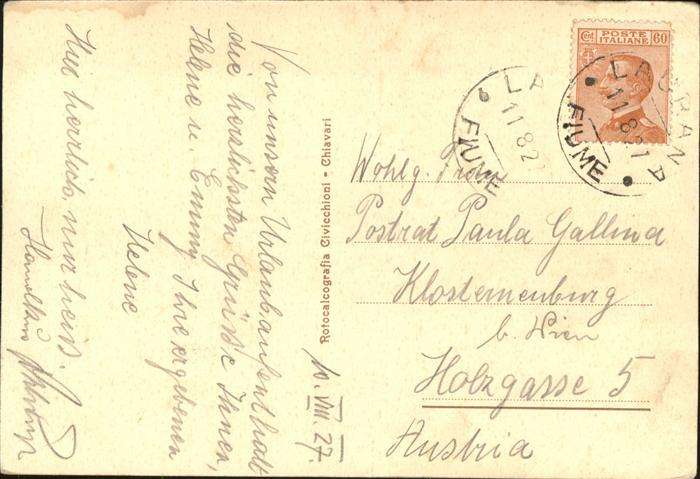 POSTE
ITALIANE
Cent
60
LAURANA
11.8.27
FIUME
LA
11.8.2
FIUME
Wohlg. Frau
Postrat Paula Gallina
Klosterneuburg
b. Wien
Holzgasse 5
Austria
Rotocalcografia Civicchioni - Chiavari
10. VIII. 27.
Von unserm Urlaubsaufenthalt
die herzlichsten Grüße Ihnen,
Helene u. Emmy Ihre ergebenen
Helene
Hier herrlich, nur heiß.